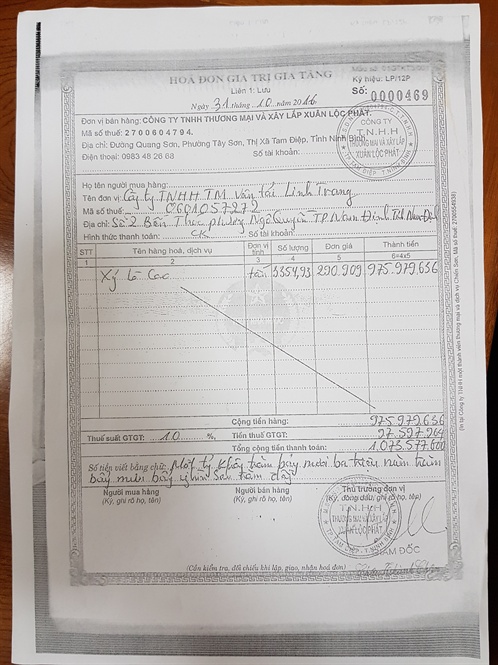 HOÁ ĐƠN GIÁ TRỊ GIA TĂNG
Ký hiệu: LP/12P
Liên 1: Lưu
Số: 0000469
Ngày 31 tháng 10 năm 2016
Đơn vị bán hàng: CÔNG TY TNHH THƯƠNG MẠI VÀ XÂY LẮP XUÂN LỘC PHÁT.
Mã số thuế: 2700604794.
Địa chỉ: Đường Quang Sơn, Phường Tây Sơn, Thị Xã Tam Điệp, Tỉnh Ninh Bình
Điện thoại: 0983 48 26 68 Số tài khoản:
CÔNG TY
T.N.H.H
THƯƠNG MẠI VÀ XÂY LẮP
XUÂN LỘC PHÁT
Họ tên người mua hàng:
Tên đơn vị: Công ty TNHH TM vận tải Linh Trang
Mã số thuế: 0601057272
Địa chỉ: Số 2 Bến Thóc phường Ngô Quyền TP Nam Định Tỉnh Nam Định
Hình thức thanh toán: CK Số tài khoản
STT Tên hàng hoá, dịch vụ Đơn vị tính Số lượng Đơn giá Thành tiền
1 2 3 4 5 6=4x5
Xỷ lò cao tấn 3354,93 290.909 975.979.636
Cộng tiền hàng: 975.979.636
Thuế suất GTGT: 10 %, Tiền thuế GTGT: 97.597.964
Tổng cộng tiền thanh toán: 1.073.577.600
Số tiền viết bằng chữ: Một tỷ không trăm bảy mươi ba triệu năm trăm
bảy mươi bảy nghìn sáu trăm đồng
Người mua hàng Người bán hàng Thủ trưởng đơn vị
(Ký, ghi rõ họ, tên) (Ký, ghi rõ họ, tên)
T.N.H.H
THƯƠNG MẠI VÀ XÂY LẮP
XUÂN LỘC PHÁT
GIÁM ĐỐC
(Cần kiểm tra, đối chiếu khi lập, giao, nhận hoá đơn)